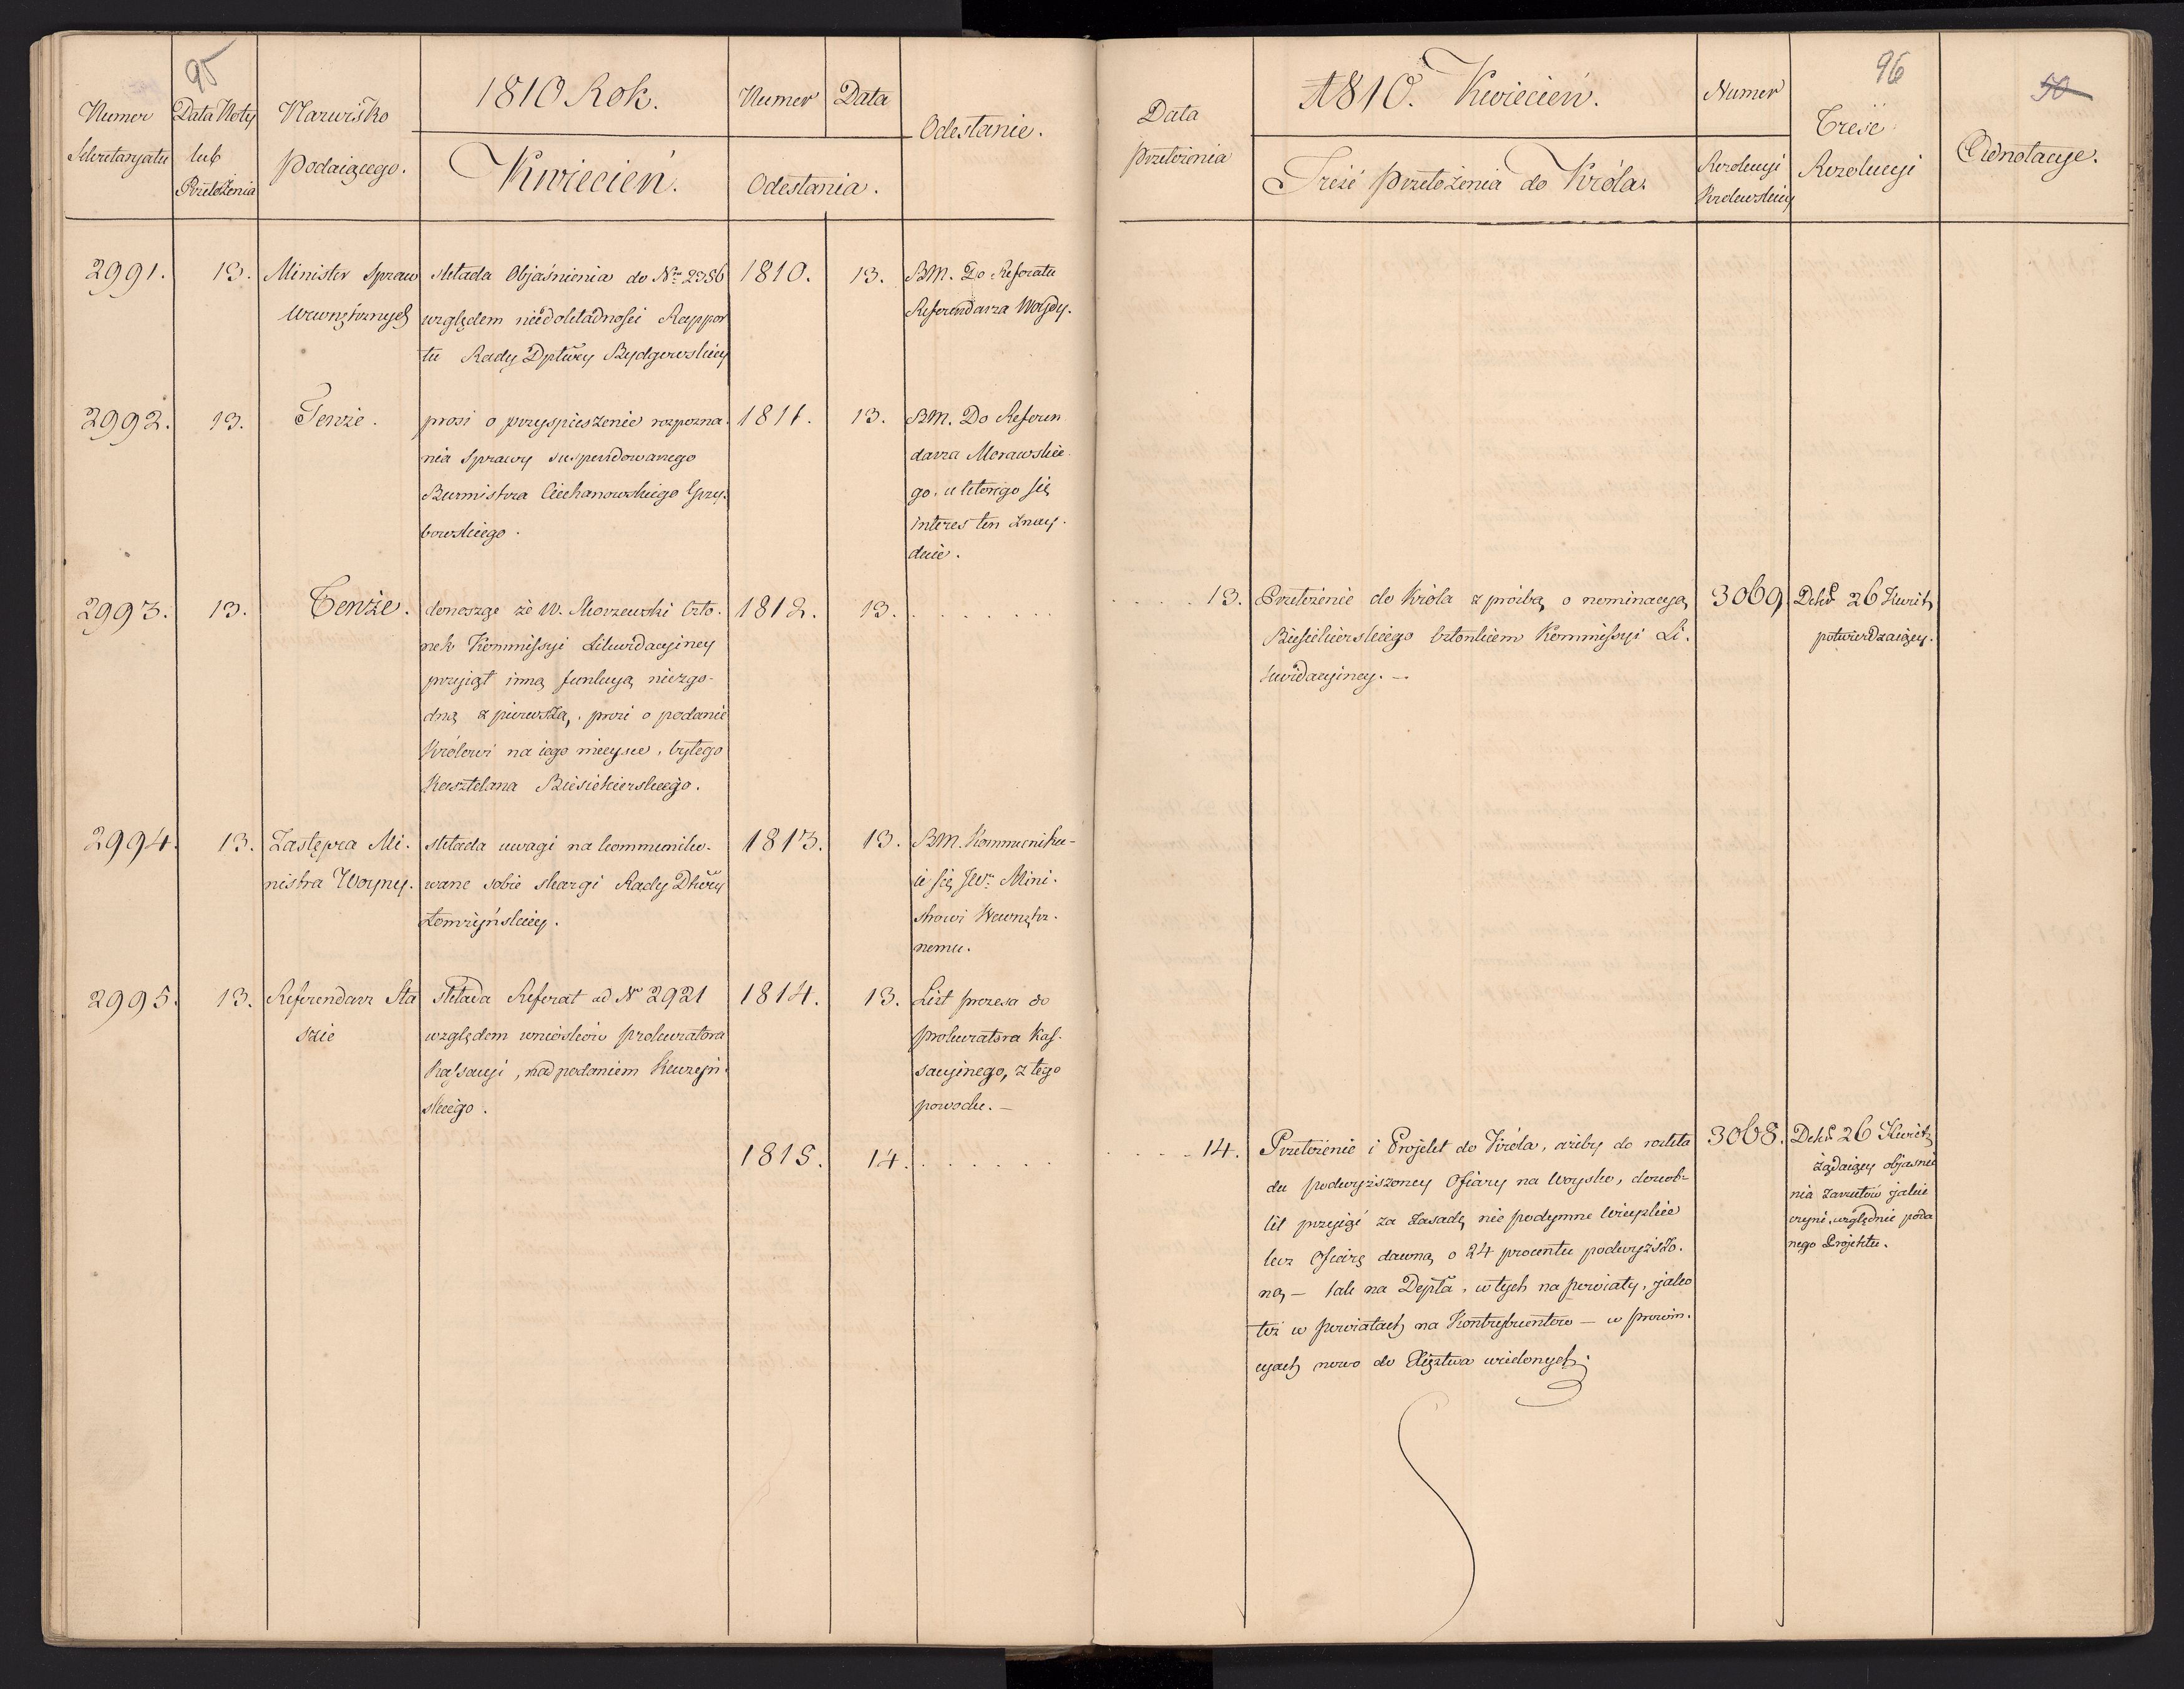 95
Numer
Sekretaryatu
Data Noty
lub
Przełożenia
Nazwisko
Podaiącego.
1810 Rok.
Kwiecień.
Numer
Data
Odesłania.
Odesłanie.
2991.
13.
Minister Spraw
Wewnętrznych
składa Objaśnienia do Nru 2386
względem niedokładności Rappor
tu Rady Dptwy Bydgowskiey
1810.
13.
BM. Do Referatu
Referendarza Woydy.
2992.
13.
Tenże.
prosi o przyspieszenie rozpozna-
nia Sprawy suspendowanego
Burmistrza Ciechanowskiego Grzy-
bowskiego.
1811.
13.
BM. Do Referen
darza Morawskie
go, u którego się
interes ten znay-
duie.
2993.
13.
Tenże.
donosząc że W. Skorzewski Czło-
nek Kommissyi Likwidacyiney
przyiął inną funkcyą niezgo-
dną z pierwszą, prosi o podanie
Królowi na iego mieysce, byłego
Kasztelana Biesiekierskiego.
1812.
13.
. . . . .
2994.
13.
Zastępca Mi-
nistra Woyny.
składa uwagi na kommuniko-
wane sobie skargi Rady Dtwey
Łomżyńskiey.
1813.
13.
BM. Kommuniku-
ie się JW. Mini-
strowi Wewnętrz-
nemu.
2995.
13.
Referendarz Sta
szic
składa Referat ad N 2921
względem wniosków prokuratora
Kassacyi, nad podaniem Kuczyń-
skiego.
1814.
13.
List prezesa do
prokuratora Kas-
sacyinego, z tego
powodu. —
1815.
14.
. . . . . .
96
50
Data
Przełożenia
1810. Kwiecień.
Treść Przełożenia do Króla.
Numer
Rezolucyi
Królewskiey
Treść
Rezolucyi
Adnotacye.
. . . . 13.
Przełożenie do Króla z prośbą o nominacyą
Biesiekierskiego Członkiem Kommissyi Li-
kwidacyiney. —
3069.
Dekt 26 Kwiet.
potwierdzaiący.
. . . . 14.
Przełożenie i Projekt do Króla, ażeby do rozkła
du podwyższoney Ofiary na Woysko, dozwo-
lił przyiąć za zasadę nie podymne Wieyskie
lecz Ofiarę dawną o 24 procentu podwyższo-
ną — tak na Depta, w tych na powiaty, jako
też w powiatach na Kontrybuentów — w prowin-
cyach nowo do Xięztwa wcielonych.
3068.
Dekt 26 Kwiet.
żądaiący objaśnie
nia zarzutów jakie
czyni względnie poda
nego Projektu.